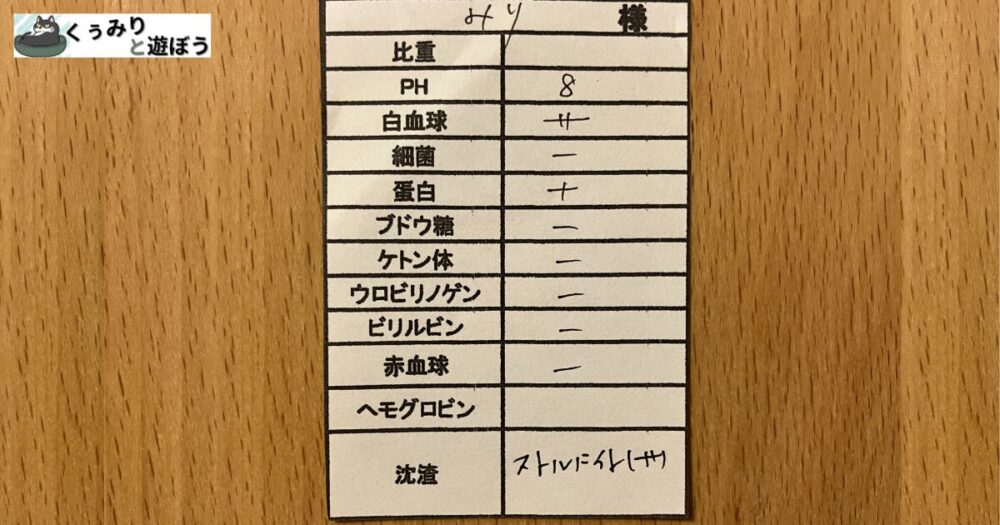 くぅみりと遊ぼう
みり 様
比重
PH 8
白血球 ++
細菌 −
蛋白 +
ブドウ糖 −
ケトン体 −
ウロビリノゲン −
ビリルビン −
赤血球 −
ヘモグロビン
沈渣 ストルバイト(++)